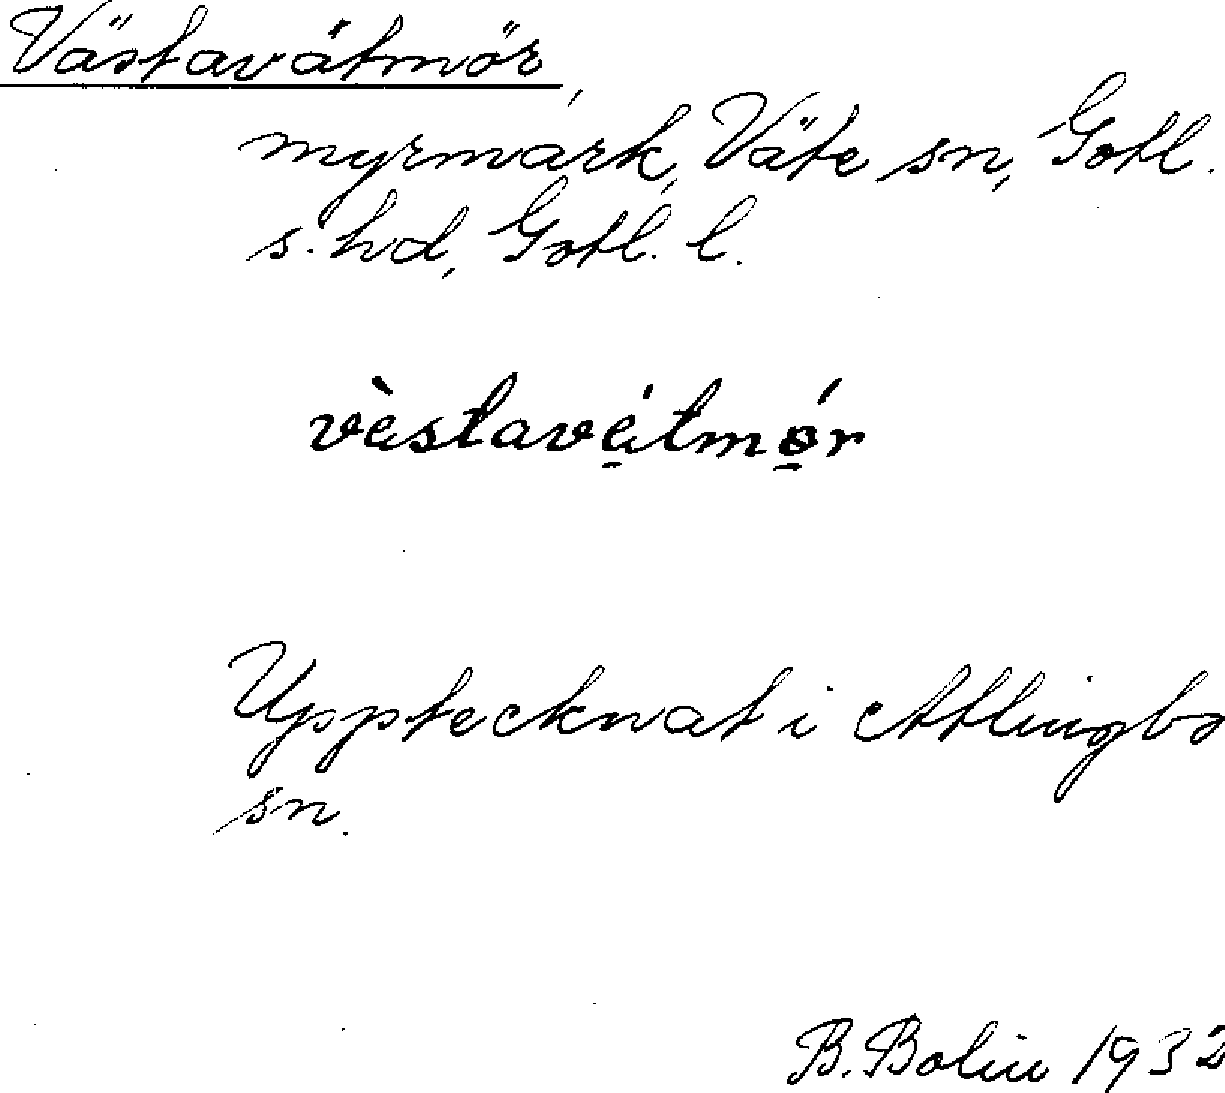 Västavätmör,
myrmark, Väte sn, Gotl.
s. hd, Gotl. l.
vèstavátmǿr
Upptecknat i Atlingbo
sn.
B. Bolin 1932